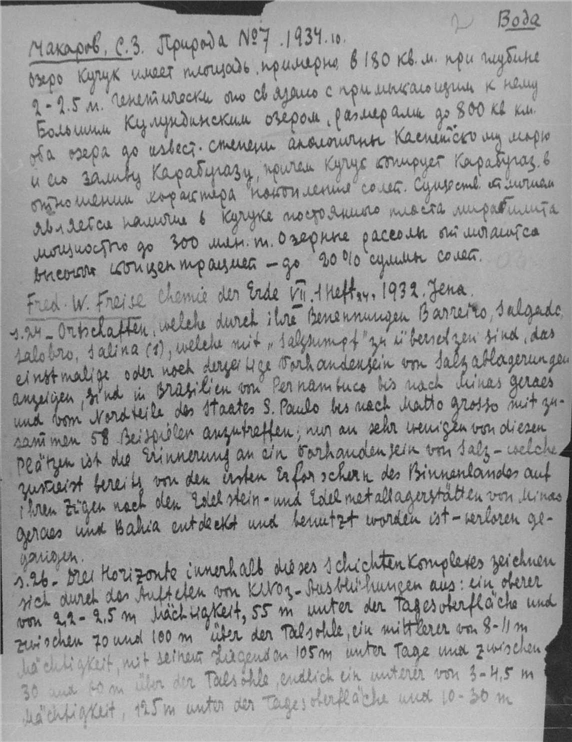 2 Вода
Макаров, С.З. Природа №7. 1934.10.
Озеро Кучук имеет площадь примерно в 180 кв.м. при глубине
2-2.5 м. Генетически оно связано с примыкающим к нему
Большим Кулундинским озером, размерами до 800 кв км.
Оба озера до извест. степени аналогичны Каспийскому морю
и его заливу Карабугазу, причем Кучук копирует Карабугаз в
отношении характера накопления солей. Существ. отличием
является наличие в Кучуке постоянного пласта мирабилита
мощностью до 300 млн. т. Озерные рассолы отличаются
высокой концентрацией — до 20% суммы солей.
Fred. W. Freise Chemie der Erde VII. 1 Heft, 24, 1932. Jena.
s.24 – Ortschaften, welche durch ihre Benennungen Barreiro, Salgado,
Salobro, Salina (s), welche mit „Salzsumpf" zu übersetzen sind, das
einstmalige oder noch derzeitige Vorhandensein von Salzablagerungen
anzeigen, sind in Brasilien von Pernambuco bis nach Minas geraes
und vom Nordteile des Staates S. Paulo bis nach Matto grosso mit zu-
sammen 58 Beispielen anzutreffen; nur an sehr wenigen von diesen
Plätzen ist die Erinnerung an ein Vorhandensein von Salz – welche
zumeist bereits von den ersten Erforschern des Binnenlandes auf
ihren Zügen nach den Edelstein- und Edelmetallagerstätten von Minas
geraes und Bahia entdeckt und benutzt worden ist – verloren ge-
gangen.
s.26 – Drei Horizonte innerhalb dieses Schichtenkomplexes zeichnen
sich durch das Auftreten von KNO3-Ausblühungen aus: ein oberer
von 2,2 – 2,5 m Mächtigkeit, 55 m unter der Tagesoberfläche und
zwischen 70 und 100 m über der Talsohle, ein mittlerer von 8-11 m
Mächtigkeit, mit seinem Liegenden 105 m unter Tage und zwischen
30 und 60 m über der Talsohle endlich ein unterer von 3-4,5 m
Mächtigkeit, 125 m unter der Tagesoberfläche und 10-30 m